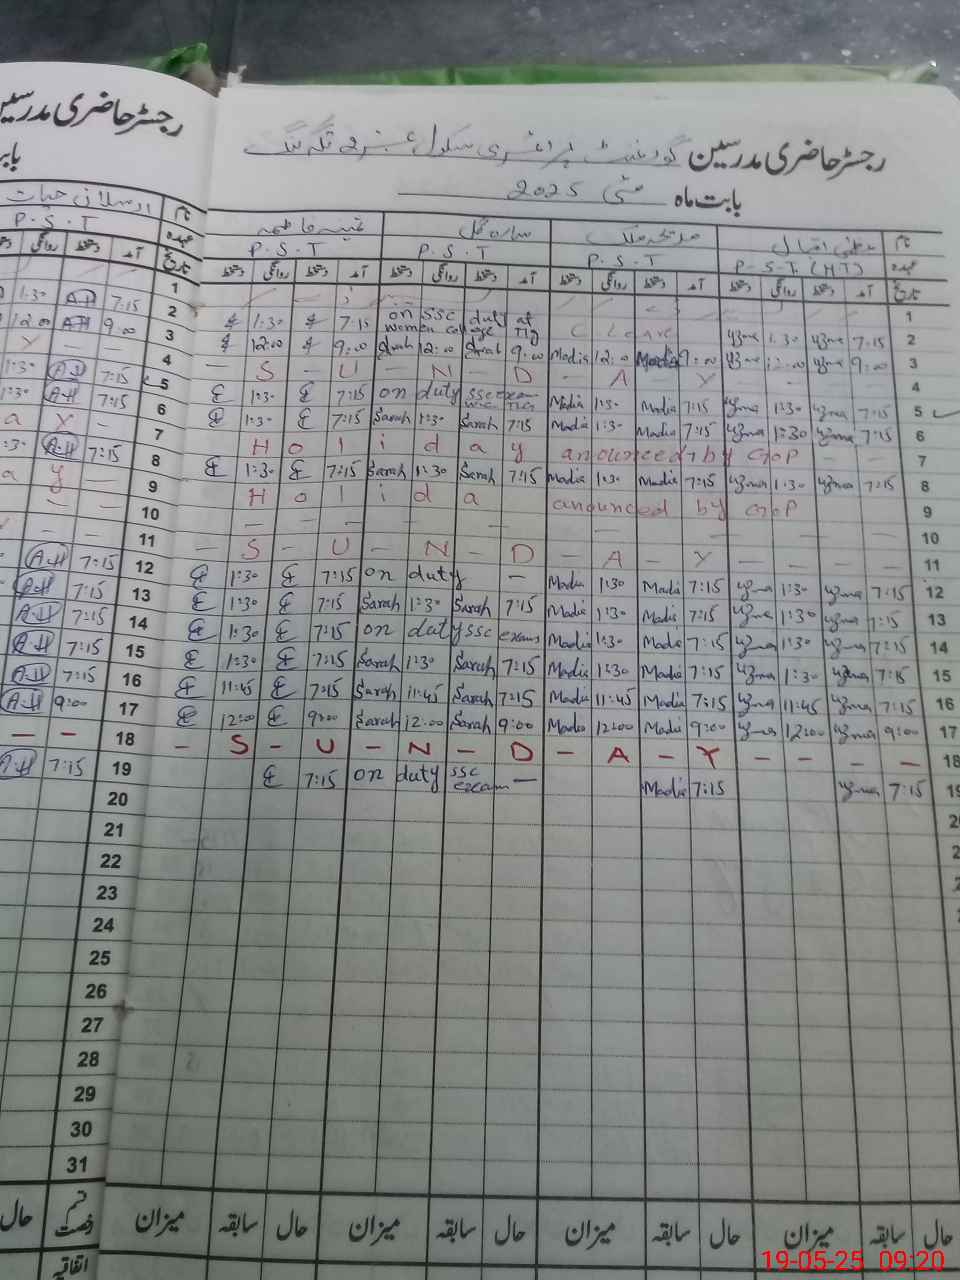 رجسٹر حاضری مدرسین گورنمنٹ پرائمری سکول نمبر 2 تلہ گنگ
رجسٹر حاضری مدرسین
بابت ماہ مئی 2025
نام عظمیٰ اقبال مدیحہ ملک سارہ گل فاطمہ نام ارسلان حیات
عہدہ P-S-T (HT) P.S.T P.S.T P.S.T عہدہ P.S.T
تاریخ آمد دستخط روانگی دستخط آمد دستخط روانگی دستخط آمد دستخط روانگی دستخط آمد دستخط روانگی دستخط تاریخ آمد دستخط روانگی
1 1
2 1:30 7:15 on SSC duty at women college TIG C Leave Uzma 1:30 Uzma 7:15 2
1:30 AH 7:15
3 12:00 9:00 Sarah 12:00 Sarah 9:00 Madia 12:00 Madia 9:00 Uzma 12:00 Uzma 9:00 3
12:00 AH 9:00
4 - S - U - N - D - A - Y - 4
Y -
5 £ 1:30 £ 7:15 on duty SSC exam TIG Madia 1:30 Madia 7:15 Uzma 1:30 Uzma 7:15 5
1:30 AH 7:15
6 £ 1:30 £ 7:15 Sarah 1:30 Sarah 7:15 Madia 1:30 Madia 7:15 Uzma 1:30 Uzma 7:15 6
1:30 AH 7:15
7 Holiday announced by GoP - - 7
a y -
8 £ 1:30 £ 7:15 Sarah 1:30 Sarah 7:15 Madia 1:30 Madia 7:15 Uzma 1:30 Uzma 7:15 8
:30 A.H 7:15
9 Holida anounced by GoP 9
a y
10 - - - - - 10
11 - S - U - N - D - A - Y 11
12 £ 1:30 £ 7:15 on duty - Madia 1:30 Madia 7:15 Uzma 1:30 Uzma 7:15 12
A.H 7:15
13 £ 1:30 £ 7:15 Sarah 1:30 Sarah 7:15 Madia 1:30 Madia 7:15 Uzma 1:30 Uzma 7:15 13
A.H 7:15
14 £ 1:30 £ 7:15 on duty SSC exams Madia 1:30 Madia 7:15 Uzma 1:30 Uzma 7:15 14
A.H 7:15
15 £ 1:30 £ 7:15 Sarah 1:30 Sarah 7:15 Madia 1:30 Madia 7:15 Uzma 1:30 Uzma 7:15 15
A.H 7:15
16 £ 11:45 £ 7:15 Sarah 11:45 Sarah 7:15 Madia 11:45 Madia 7:15 Uzma 11:45 Uzma 7:15 16
A.H 7:15
17 £ 12:00 £ 9:00 Sarah 12:00 Sarah 9:00 Madia 12:00 Madia 9:00 Uzma 12:00 Uzma 9:00 17
A.H 9:00
18 - S - U - N - D - A - Y - - - - 18
19 £ 7:15 on duty SSC exam - Madia 7:15 Uzma 7:15 19
A.H 7:15
20
21
22
23
24
25
26
27
28
29
30
31
حال سابقہ میزان حال سابقہ میزان حال سابقہ میزان حال سابقہ میزان قسم رخصت حال
اتفاقیہ
19-05-25 09:20